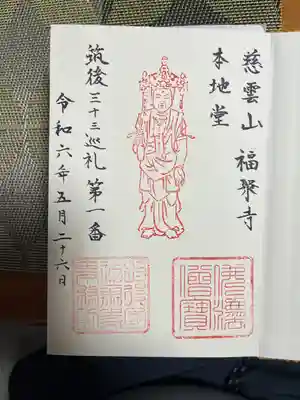 慈雲山 福聚寺
本地堂
筑後三十三巡礼 第一番
令和六年五月二十六日
佛法僧寶